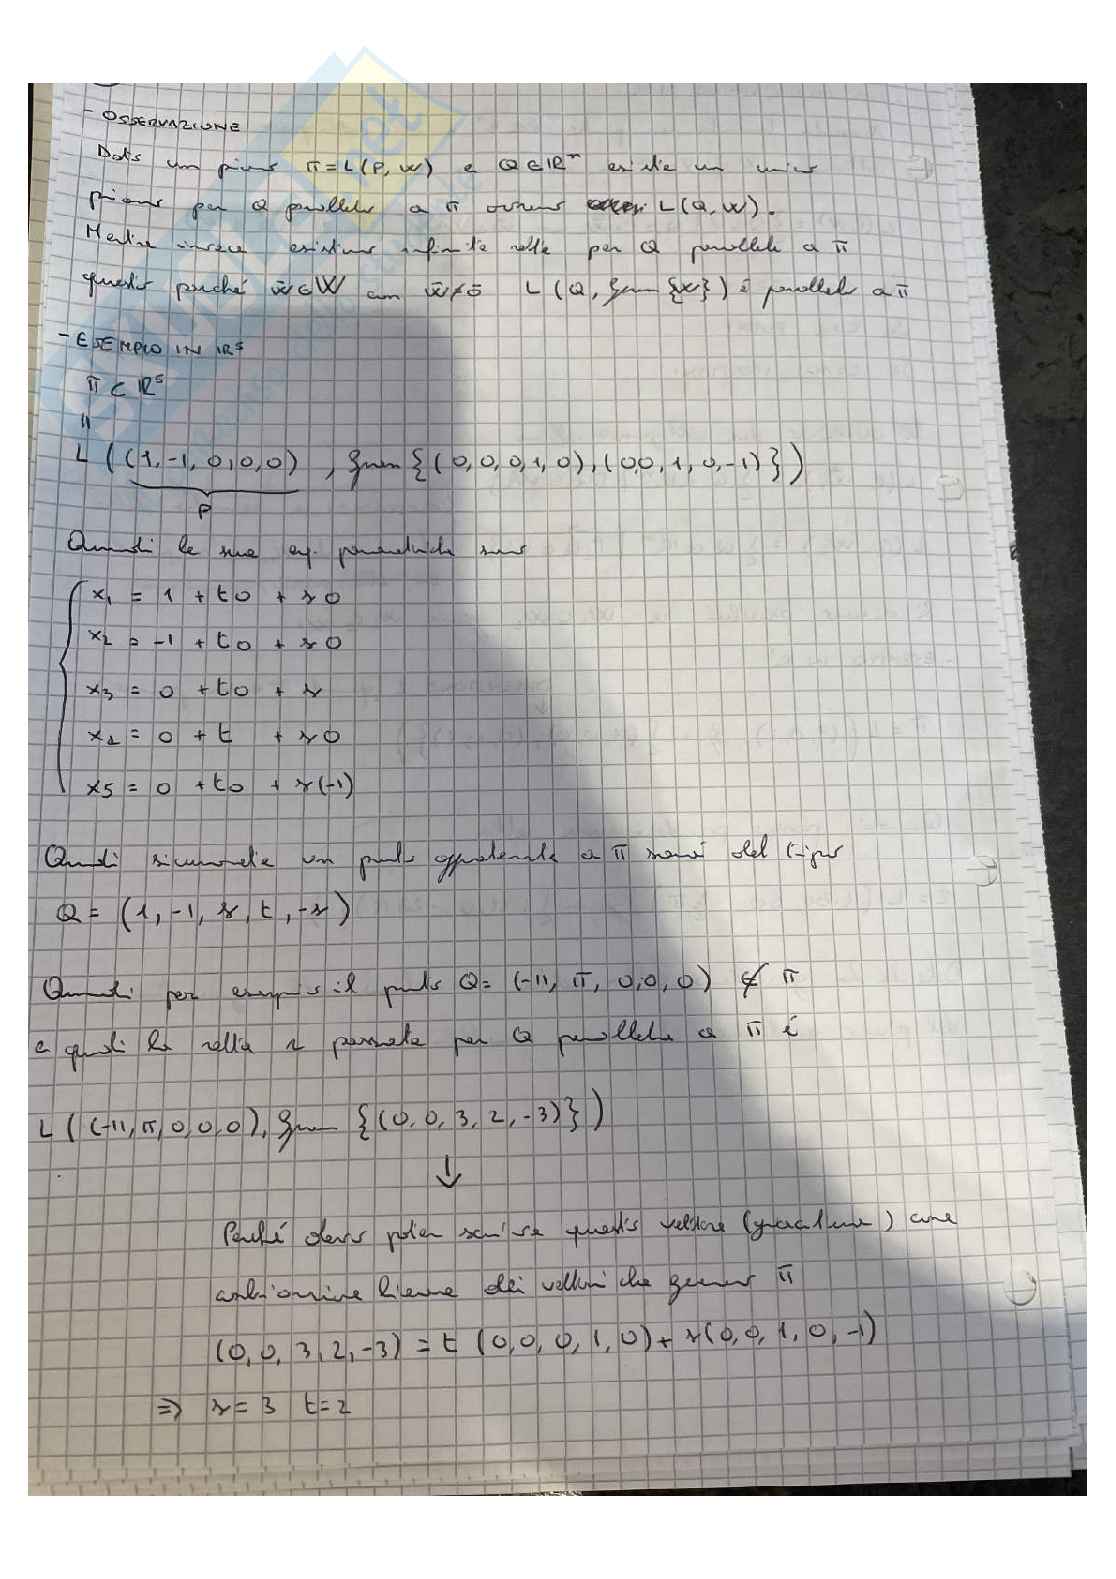 - OSSERVAZIONE
Dato un piano π = L(P, W) e Q ∈ IRⁿ esiste un unico
piano per Q parallelo a π ovvero L(Q, W).
Mentre invece esistono infinite rette per Q parallele a π
questo perché w̄ ∈ W con w̄ ≠ ō L(Q, Span {w}) è parallelo a π
- ESEMPIO IN IR⁵
π ⊂ IR⁵
"
L((1, -1, 0, 0, 0), Span {(0, 0, 0, 1, 0), (0, 0, 1, 0, -1)})
P
Quindi le sue eq. parametriche sono
x₁ = 1 + t0 + s0
x₂ = -1 + t0 + s0
x₃ = 0 + t0 + s
x₄ = 0 + t + s0
x₅ = 0 + t0 + s(-1)
Quindi sicuramente un punto appartenente a π sarà del tipo
Q = (1, -1, s, t, -s)
Quindi per esempio il punto Q = (-11, π, 0, 0, 0) ∉ π
e quindi la retta r passante per Q parallela a π è
L((-11, π, 0, 0, 0), Span {(0, 0, 3, 2, -3)})
↓
Perché devo poter scrivere questo vettore (giacitura) come
combinazione lineare dei vettori che generano π
(0, 0, 3, 2, -3) = t (0, 0, 0, 1, 0) + s(0, 0, 1, 0, -1)
⇒ s = 3 t = 2